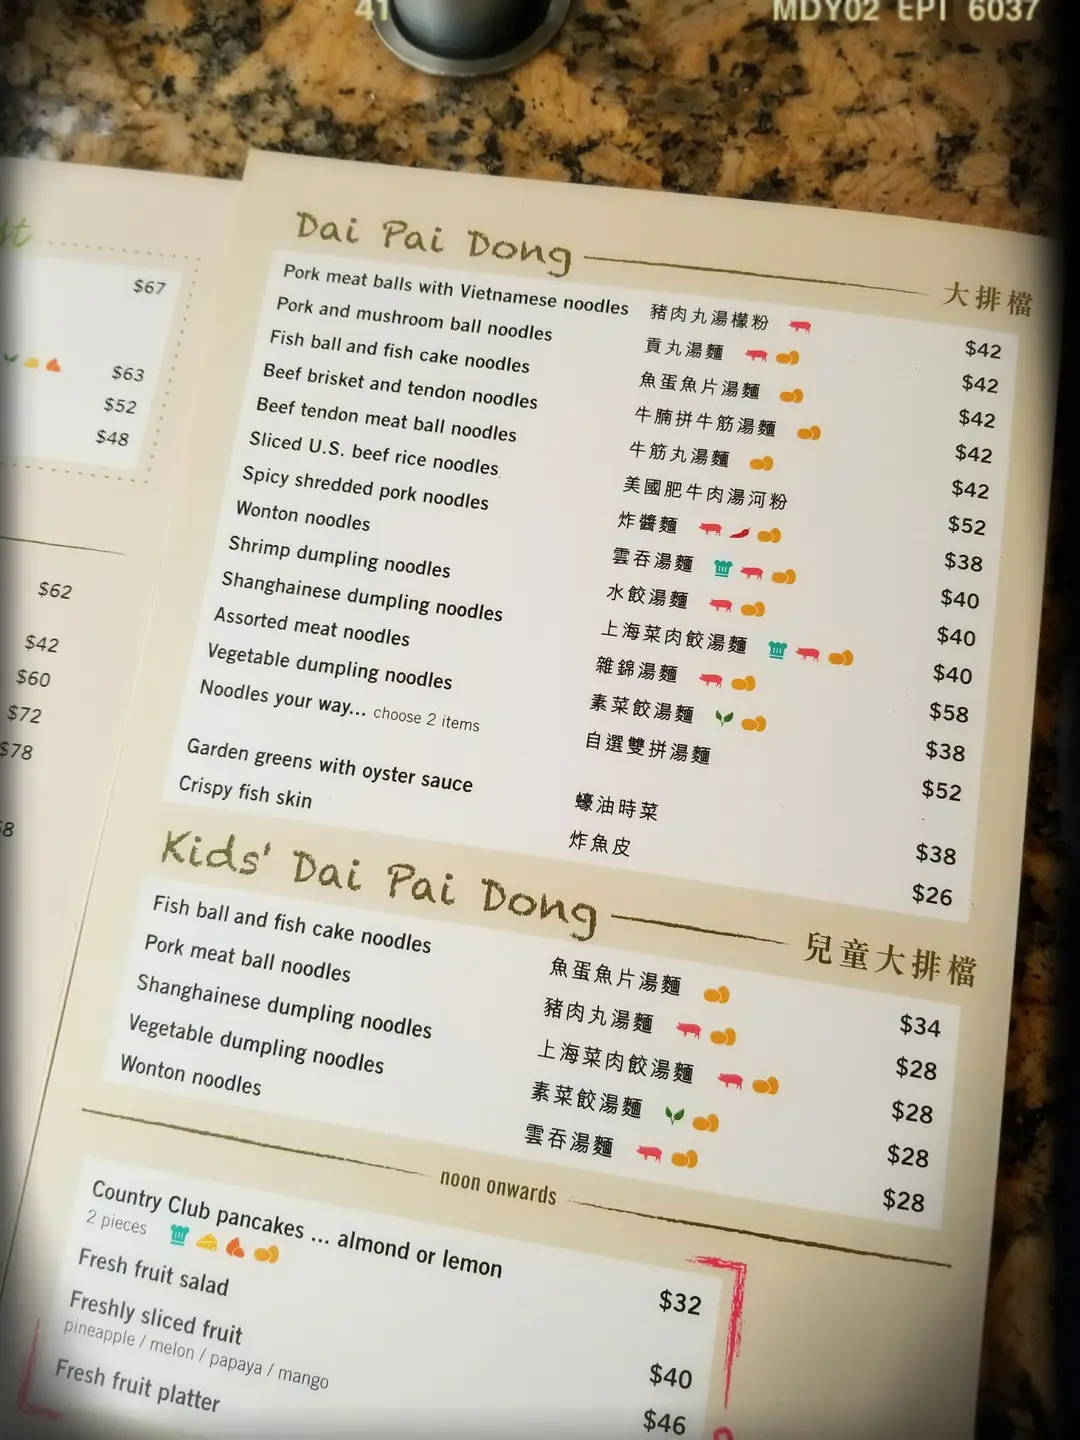 41
MDY02 EPI 6037
$67
$63
$52
$48
$62
$42
$60
$72
$78
Dai Pai Dong 大排檔
Pork meat balls with Vietnamese noodles 豬肉丸湯檬粉 $42
Pork and mushroom ball noodles 貢丸湯麵 $42
Fish ball and fish cake noodles 魚蛋魚片湯麵 $42
Beef brisket and tendon noodles 牛腩拼牛筋湯麵 $42
Beef tendon meat ball noodles 牛筋丸湯麵 $42
Sliced U.S. beef rice noodles 美國肥牛肉湯河粉 $52
Spicy shredded pork noodles 炸醬麵 $38
Wonton noodles 雲吞湯麵 $40
Shrimp dumpling noodles 水餃湯麵 $40
Shanghainese dumpling noodles 上海菜肉餃湯麵 $40
Assorted meat noodles 雜錦湯麵 $58
Vegetable dumpling noodles 素菜餃湯麵 $38
Noodles your way... choose 2 items 自選雙拼湯麵 $52
Garden greens with oyster sauce 蠔油時菜 $38
Crispy fish skin 炸魚皮 $26
Kids' Dai Pai Dong 兒童大排檔
Fish ball and fish cake noodles 魚蛋魚片湯麵 $34
Pork meat ball noodles 豬肉丸湯麵 $28
Shanghainese dumpling noodles 上海菜肉餃湯麵 $28
Vegetable dumpling noodles 素菜餃湯麵 $28
Wonton noodles 雲吞湯麵 $28
noon onwards
Country Club pancakes ... almond or lemon $32
2 pieces
Fresh fruit salad $40
Freshly sliced fruit $46
pineapple / melon / papaya / mango
Fresh fruit platter